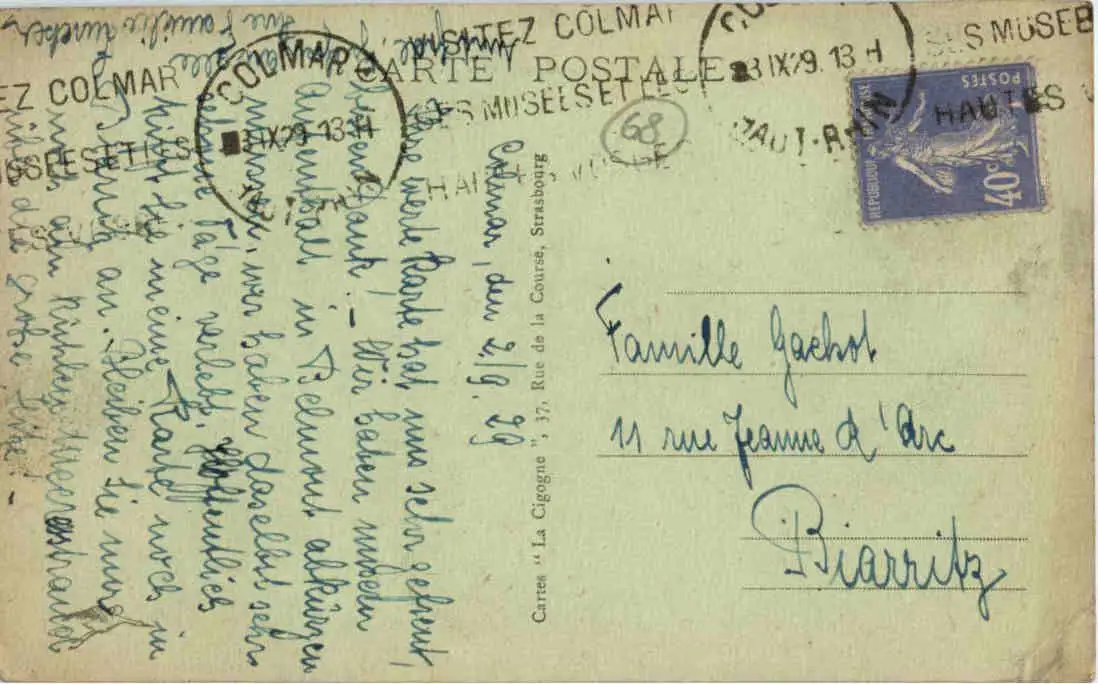 CARTE POSTALE
VISITEZ COLMAR
SES MUSEES ET LES
HAUTES VOSGES
COLMAR
3 IX 29. 13 H
HAUT-RHIN
COLMAR
3 IX 29. 13 H
HAUT-RHIN
EZ COLMAR
MUSEES ET LES
SES MUSEE
HAUTES V
68
POSTES
REPUBLIQUE FRANÇAISE
40c
Colmar, den 2./9. 29
Ihre werte Karte hat uns sehr gefreut,
Dank! — Wir haben unsern
Aufenthalt in Belmont abkürzen
müssen, wir haben daselbst sehr
schöne Tage verlebt, hoffentlich
Sie meine Karte noch in
an. Bleiben Sie nur
am kühlen Meeresstrand
die große Hitze! -
Ihre Familie
Cartes " La Cigogne ", 37, Rue de la Course, Strasbourg
Famille Gachot
11 rue Jeanne d'Arc
Biarritz